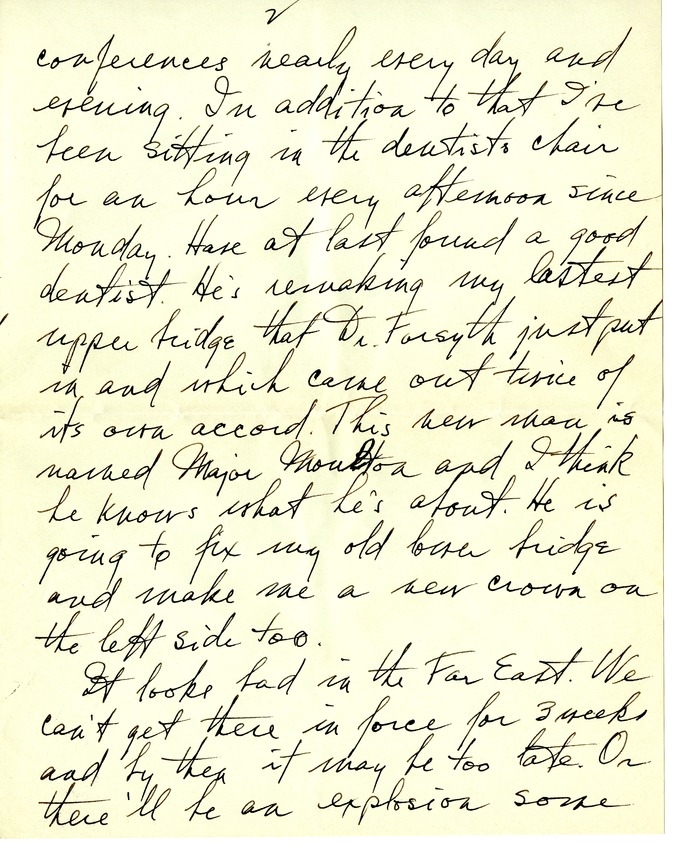 2
conferences nearly every day and
evening. In addition to that I've
been sitting in the dentists chair
for an hour every afternoon since
Monday. Have at last found a good
dentist. He's remaking my lastest
upper bridge that Dr. Forsyth just put
in and which came out twice of
its own accord. This new man is
named Major Moulton and I think
he knows what he's about. He is
going to fix my old lower bridge
and make me a new crown on
the left side too.
It looks bad in the Far East. We
can't get there in force for 3 weeks
and by then it may be too late. Or
there'll be an explosion some